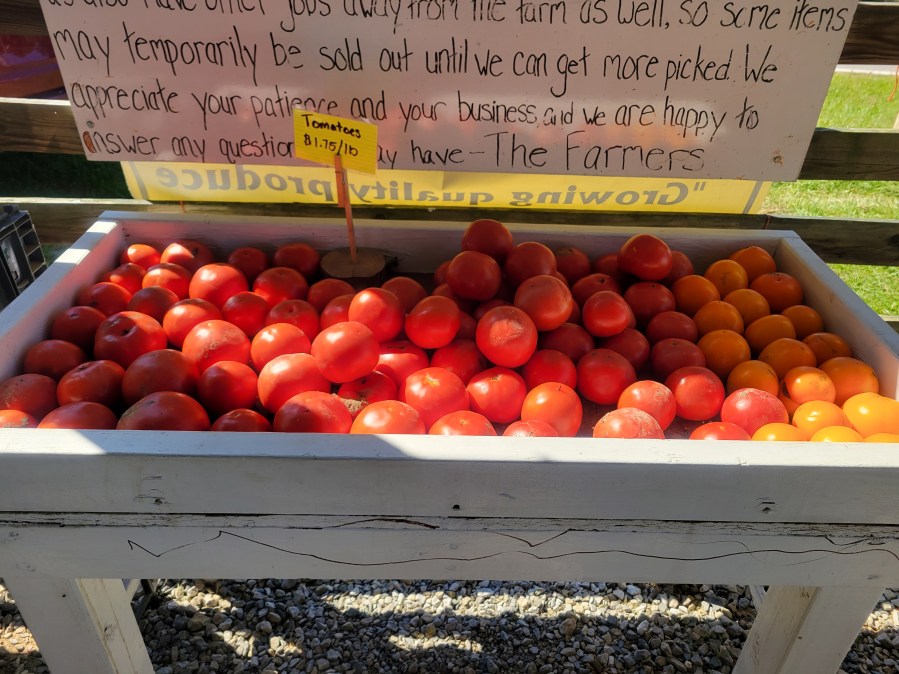 as also have other jobs away from the farm as well, so some items
may temporarily be sold out until we can get more picked. We
appreciate your patience and your business, and we are happy to
answer any question ay have - The Farmers
Tomatoes
$1.75/lb
"Growing quality produce